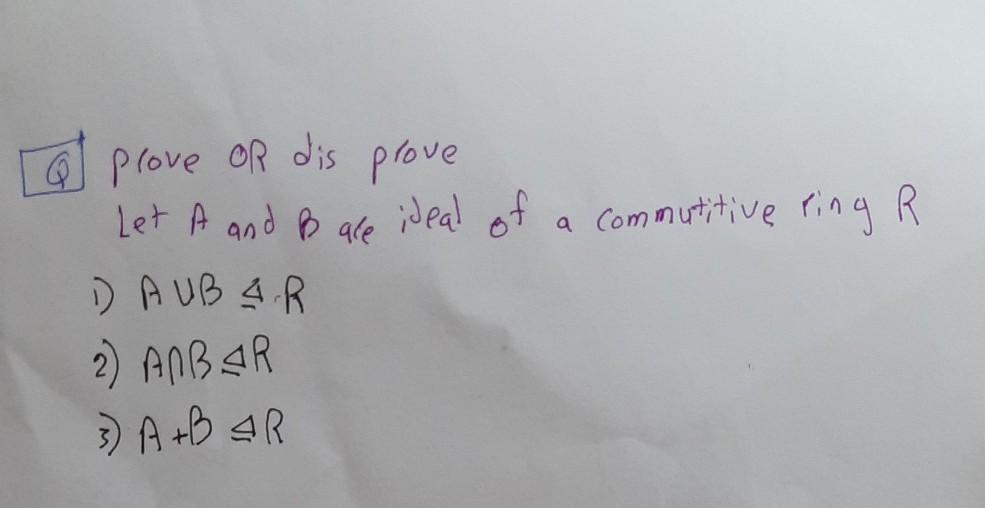 Q prove OR dis prove
Let A and B are ideal of a commutitive ring R
1) A ∪ B ⊴ R
2) A ∩ B ⊴ R
3) A + B ⊴ R